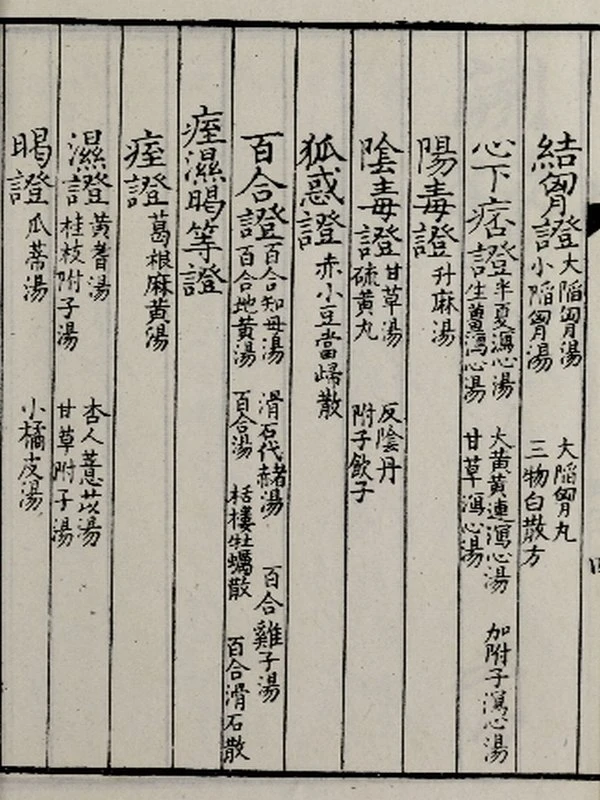 結胷證 大陷胷湯 大陷胷丸
小陷胷湯 三物白散方
心下痞證 半夏瀉心湯 大黃黃連瀉心湯 加附子瀉心湯
生薑瀉心湯 甘草瀉心湯
陽毒證 升麻湯
陰毒證 甘草湯 反陰丹
硫黃丸 附子飲子
狐惑證 赤小豆當歸散
百合證 百合知母湯 滑石代赭湯 百合雞子湯
百合地黃湯 百合湯 栝樓牡蠣散 百合滑石散
痓濕暍等證
痓證 葛根麻黃湯
濕證 黃耆湯 杏人薏苡湯
桂枝附子湯 甘草附子湯
暍證 瓜蒂湯 小橘皮湯